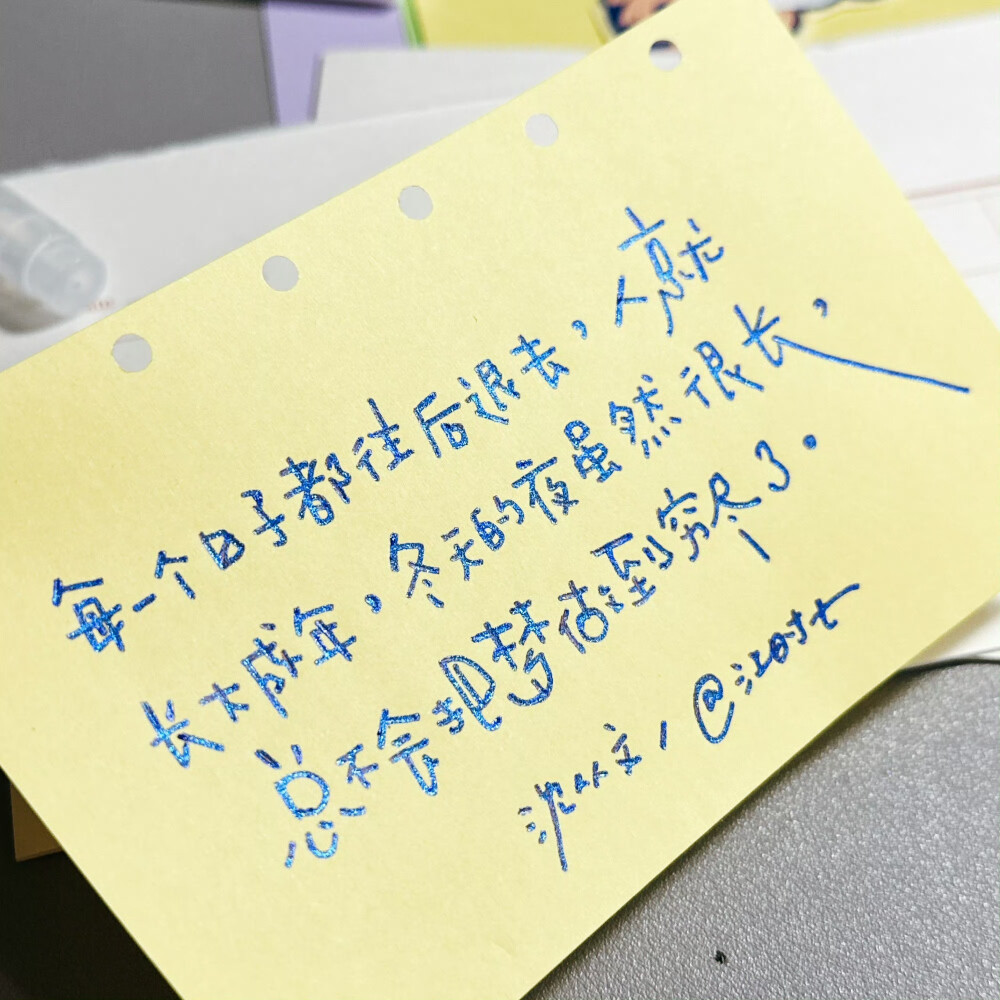 每一个日子都往后退去，人就
长大成年，冬天的夜虽然很长，
总不会把梦做到穷尽了。
沈从文，@江时七